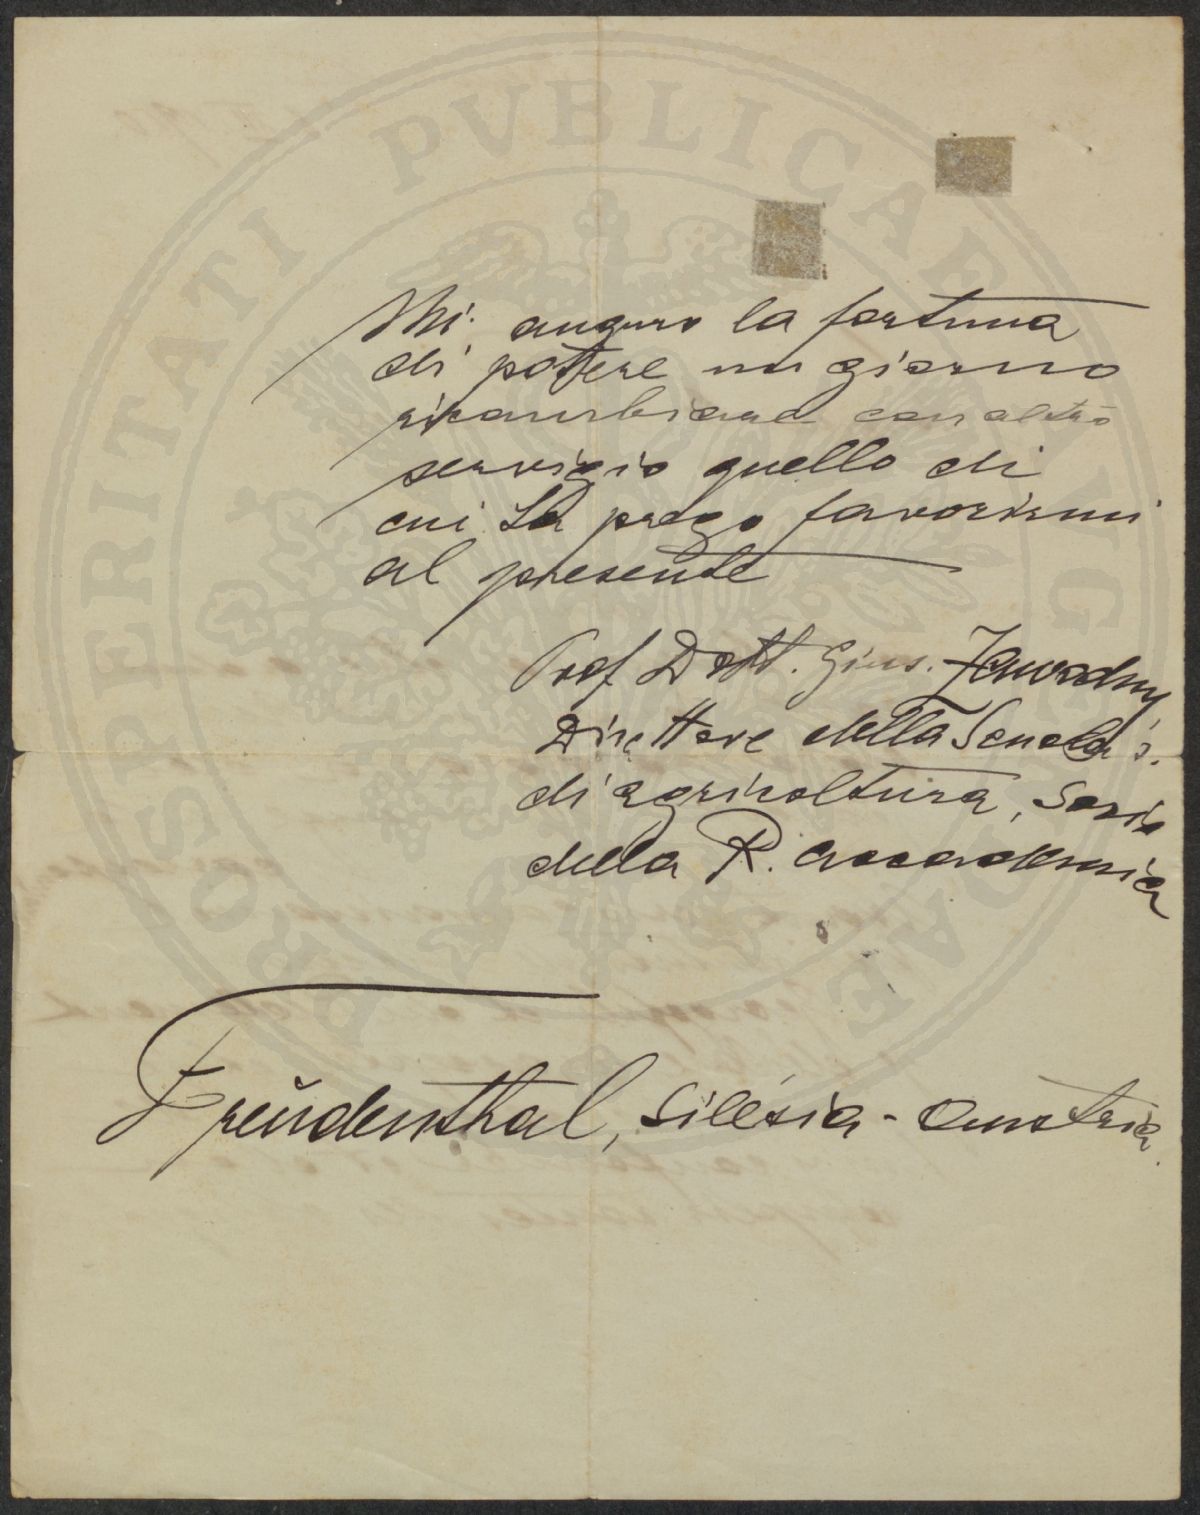 PROSPERITATI PVBLICAE AVGENDAE
Mi auguro la fortuna
di potere un giorno
ricambiare con altro
servigio quello di
cui La prego favorirmi
al presente
Prof Dott. Gius.
Direttore della Scuola s.
di agricoltura, Socio
della R. accademia
Freŭdenthal, Silésia - Austria.